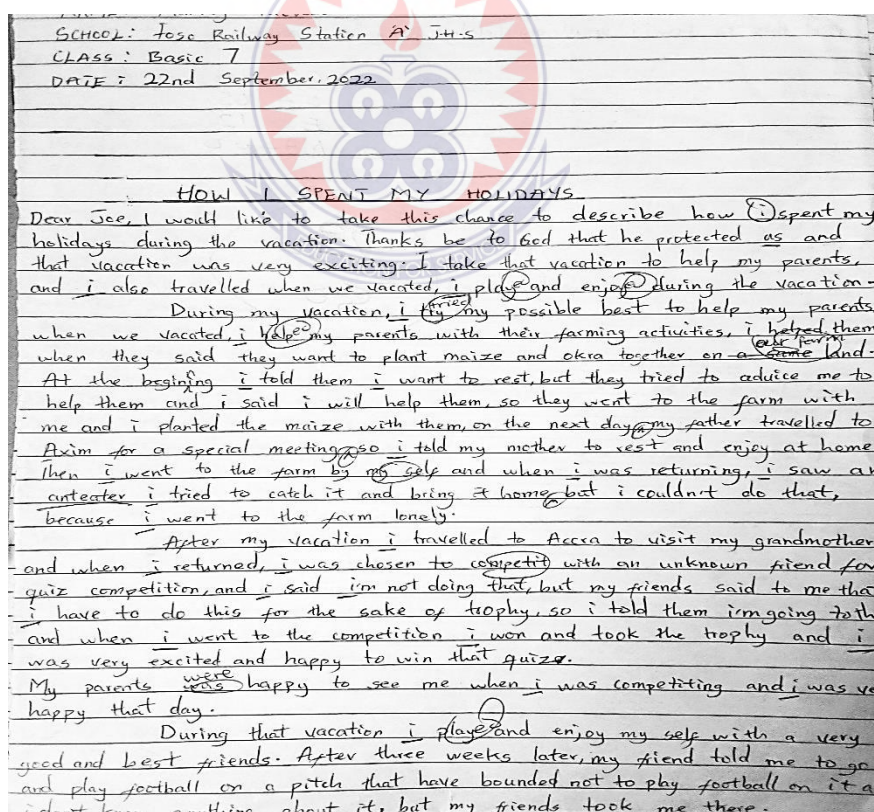 SCHOOL: Tose Railway Station 'A' J.H.S
CLASS: Basic 7
DATE: 22nd September, 2022
HOW I SPENT MY HOLIDAYS
Dear Joe, I would like to take this chance to describe how i spent my
holidays during the vacation. Thanks be to God that he protected us and
that vacation was very exciting. I take that vacation to help my parents,
and i also travelled when we vacated, i playe and enjoye during the vacation-
During my vacation, i try tried my possible best to help my parents
when we vacated, i helpe my parents with their farming activities, i helped them
when they said they want to plant maize and okra together on a same our farm land-
At the begining i told them i want to rest, but they tried to advice me to
help them and i said i will help them, so they went to the farm with
me and i planted the maize with them, on the next day my father travelled to
Axim for a special meeting so i told my mother to rest and enjoy at home
Then i went to the farm by my self and when i was returning, i saw an
anteater i tried to catch it and bring it home but i couldn't do that,
because i went to the farm lonely.
After my vacation i travelled to Accra to visit my grandmother
and when i returned, i was chosen to competit with an unknown friend for
quiz competition, and i said i'm not doing that, but my friends said to me tha
i have to do this for the sake of trophy, so i told them i'm going to th
and when i went to the competition i won and took the trophy and i
was very excited and happy to win that quize.
My parents was were happy to see me when i was competiting and i was ve
happy that day.
During that vacation i playe and enjoy my self with a very
good and best friends. After three weeks later, my fiend told me to go
and play football on a pitch that have bounded not to play football on it a
i don't know anything about it, but my friends took me there.